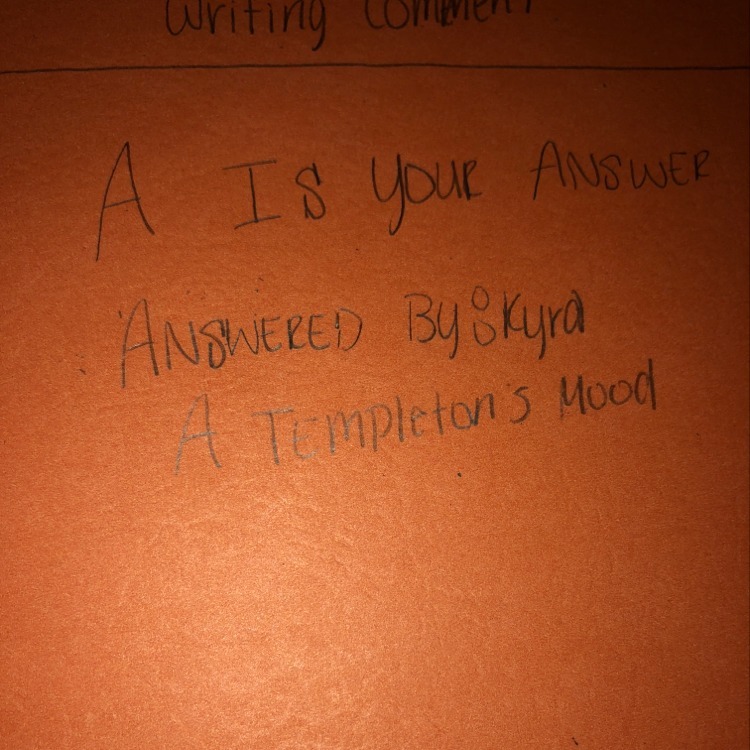 Writing Comment
A Is Your Answer
Answered By: Kyra
A Templeton's Mood